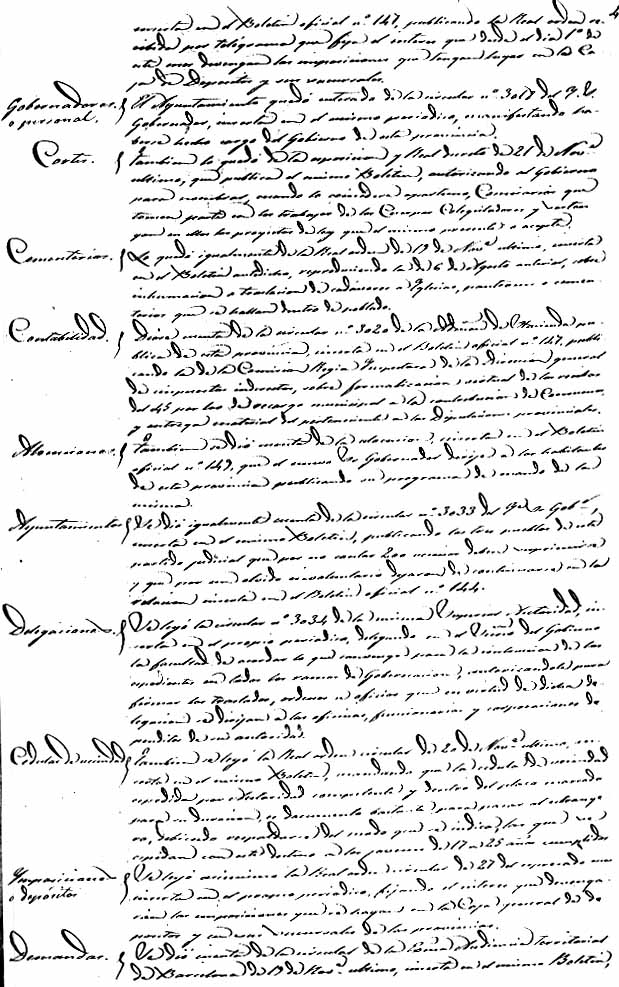 inserta en el Boletin oficial nº 147, publicando la Real orden re-
cibida por telégrama que fija el interes que desde el dia 1º de
este mes devengan las imposiciones que tengan lugar en la Ca-
ja de Depósitos y sus sucursales.
Gobernadores o personal. El Ayuntamiento quedó enterado de la circular nº 3017 del Y. S.
Gobernador, inserta en el mismo periodico, manifestando ha-
berse hecho cargo del Gobierno de esta provincia.
Cortes. Tambien lo quedó de la esposicion y Real decreto de 21 de Novᵉ
ultimo, que publica el mismo Boletin, autorizando al Gobierno
para nombrar, cuando lo considere oportuno, Comisarios que
tomen parte en los trabajos de los Cuerpos Colegisladores y
en ellos los proyectos de ley que el mismo presente o acepte.
Cementerios. Lo quedó igualmente de la Real orden de 19 de Novᵉ ultimo, inserta
en el Boletin antedicho, reproduciendo la de 6 de Agosto anterior, sobre
inhumacion o traslacion de cadáveres a Iglesias, panteones o cemen-
terios que se hallan dentro de poblado.
Contabilidad. Diose cuenta de la circular nº 3020 de la Admon de Hacienda pu-
blica de esta provincia, inserta en el Boletin oficial nº 147, publi-
cando la de la Comision Regia Inspectora de la Direccion general
de impuestos indirectos, sobre formalizacion virtual de las rentas
del 45 por 100 de recargo municipal a la contribucion de Consumos,
y entrega material del perteneciente a las Diputaciones provinciales.
Alocuciones. Tambien se dió cuenta de la alocucion, inserta en el Boletin
oficial nº 147, que el nuevo Sor Gobernador dirije a los habitantes
de esta provincia publicando su programa de mando de la
misma.
Ayuntamientos Se dió igualmente cuenta de la circular nº 3033 del Gobᵒʳ,
inserta en el mismo Boletin, publicando los tres pueblos de este
partido judicial que por no contar 200 vecinos deben suprimirse
y que por un olvido involuntario dejaron de continuarse en la
relacion inserta en el Boletin oficial nº 144.
Delegaciones. Se leyó la circular nº 3034 de la misma Superior Autoridad, in-
serta en el propio periodico, delegando en el Secrio del Gobierno
la facultad de acordar lo que convenga para la instruccion de los
espedientes en todos los ramos de Gobernacion, autorizandole para
firmar los traslados, ordenes u oficios que en virtud de dicha de-
legacion se dirijan a las oficinas, funcionarios y corporaciones de-
pendientes de su autoridad.
Cedulas de vecindad Tambien se leyó la Real orden circular de 20 de Novᵉ ultimo, in-
serta en el mismo Boletin, mandando que la cedula de vecindad
espedida por autoridad competente y dentro del plazo marcado
para su duracion, es documento bastante para pasar al estrange-
ro, debiendo respaldarse del modo que se indica, las que se
espidan con este destino a los jovenes de 17 a 25 años cumplidos
Imposiciones o depósitos Se leyó asimismo la Real orden circular de 27 del espresado mes
inserta en el propio periodico, fijando el interes que devenga-
rán las imposiciones que se hagan en la Caja general de de-
positos y en sus sucursales de las provincias.
Demandas. Se dió cuenta de la circular de la Audiencia territorial
de Barcelona de 19 de Novᵉ ultimo, inserta en el mismo Boletin,